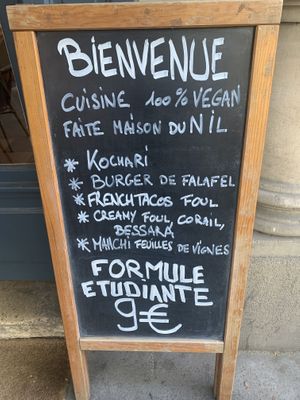 BIENVENUE
CUISINE 100% VEGAN
FAITE MAISON DU NIL
* KOCHARI
* BURGER DE FALAFEL
* FRENCH TACOS FOUL
* CREAMY FOUL, CORAIL,
BESSARA
* MAHCHI FEUILLES DE VIGNES
FORMULE
ETUDIANTE
9€